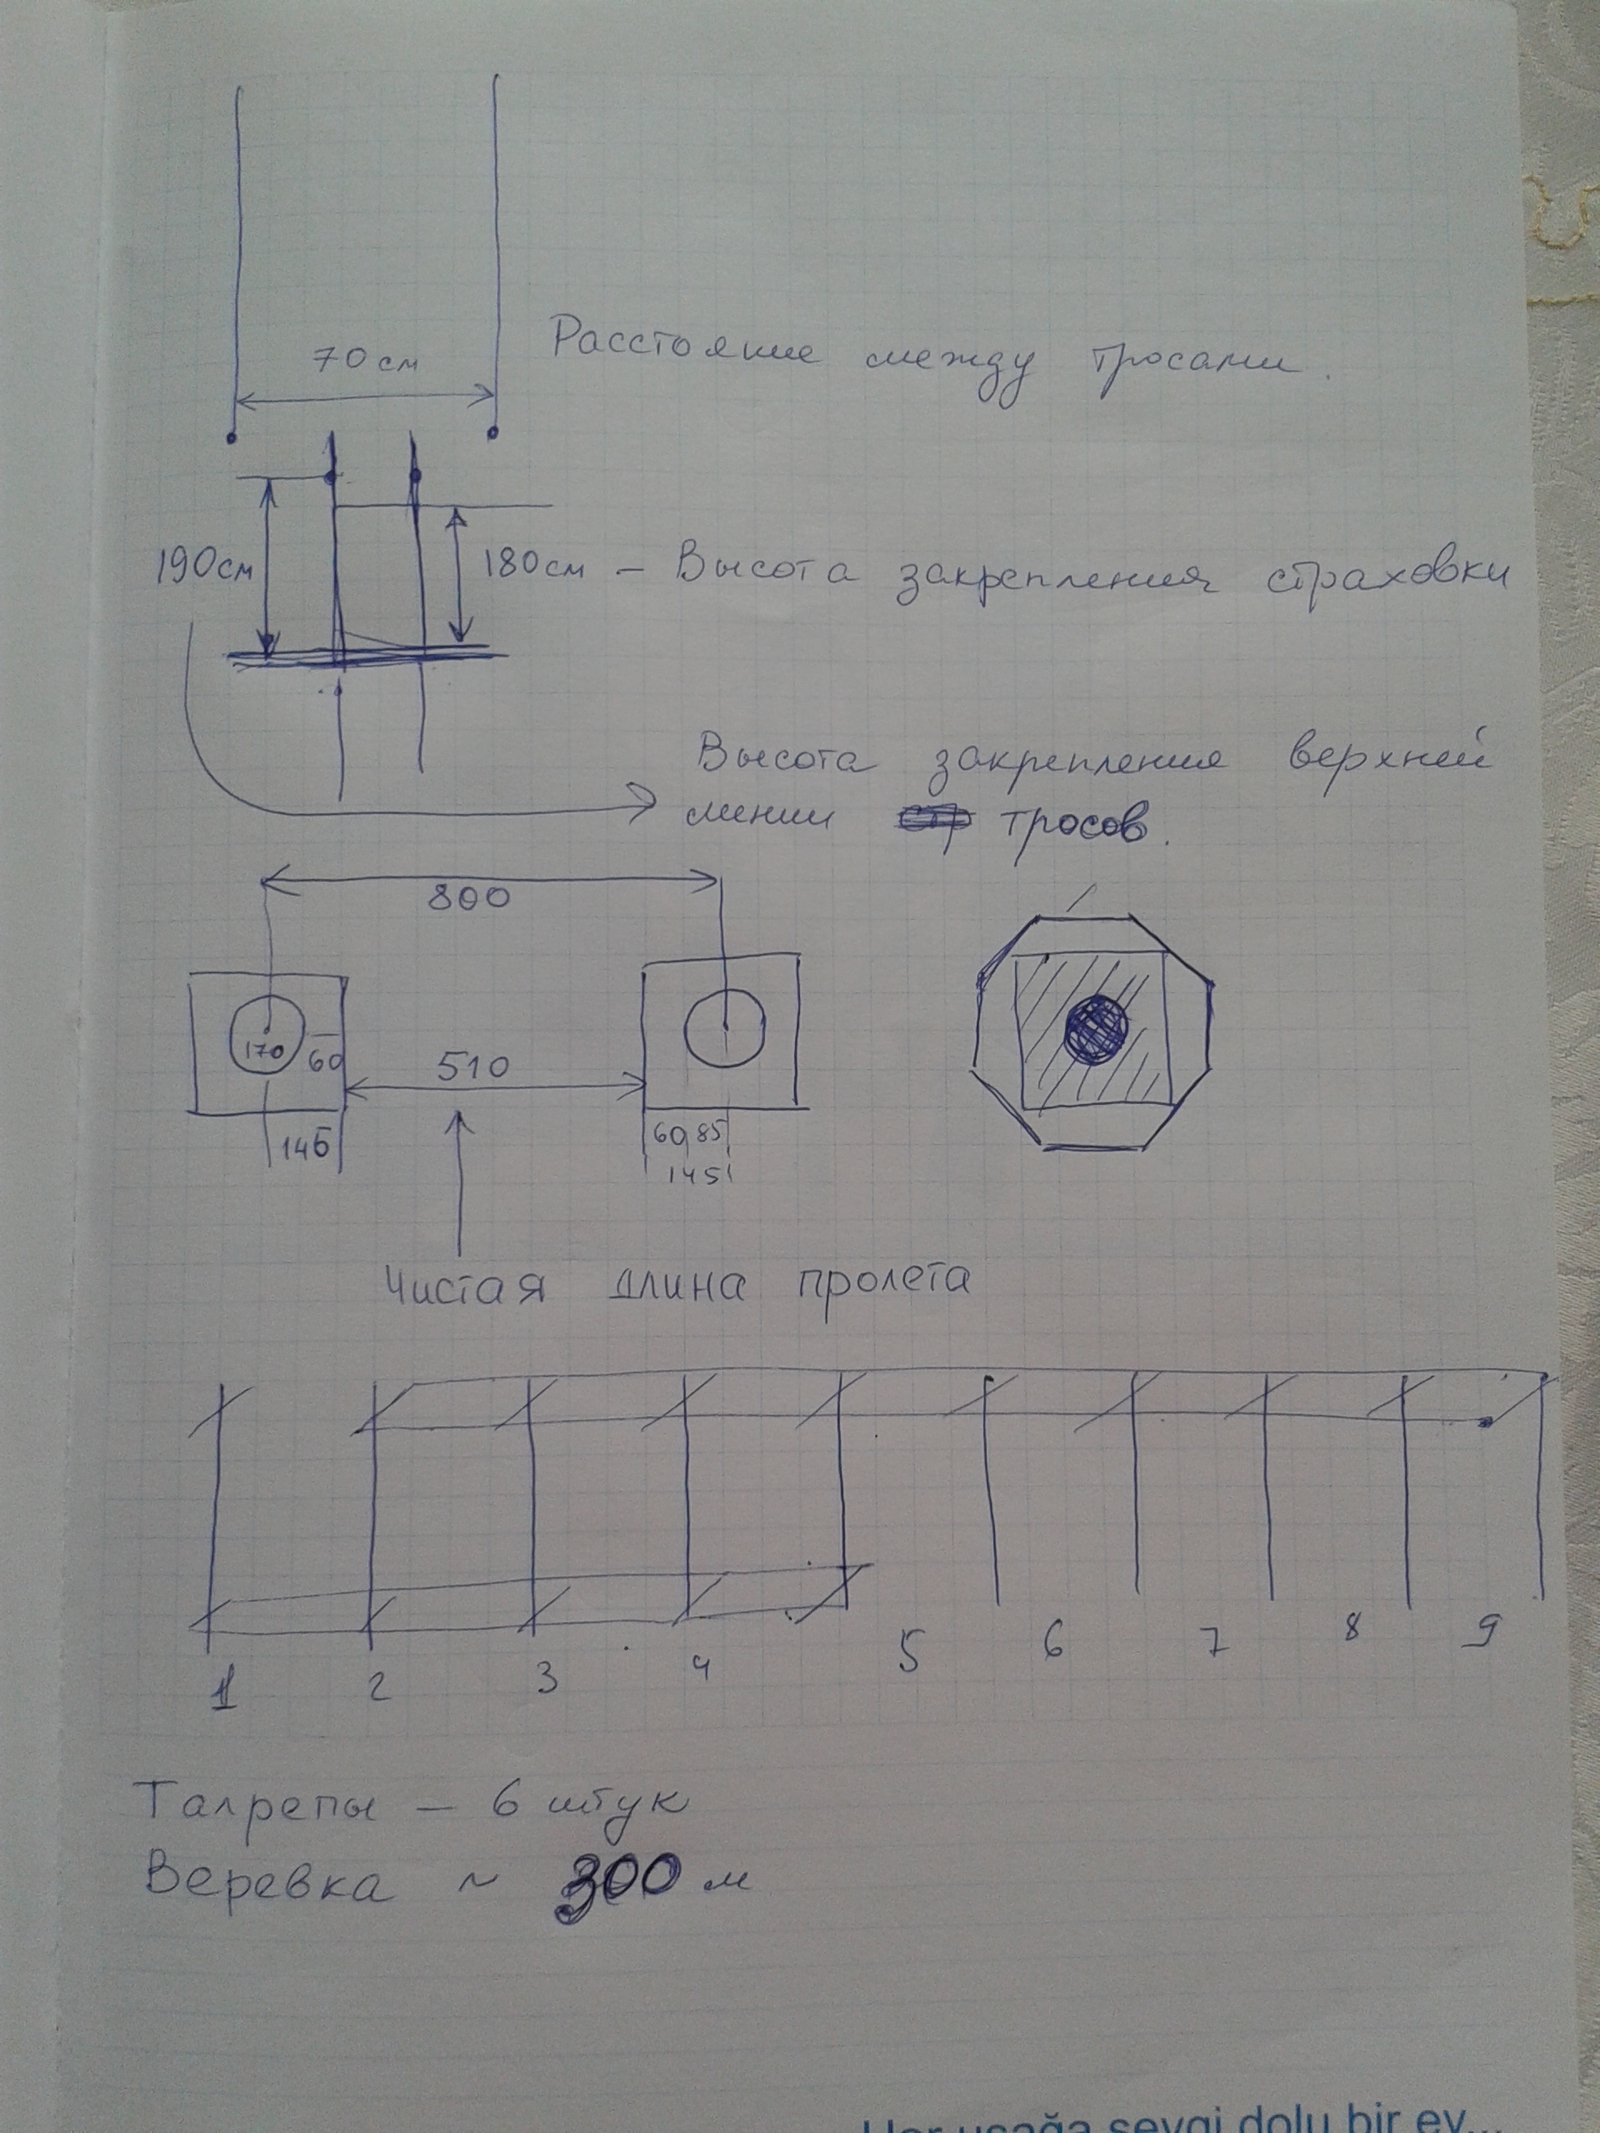 70 см
Расстояние между тросами.
190см
180см – Высота закрепления страховки
Высота закрепление верхней
линии тросов.
800
170
60
510
145
60 85
145
Чистая длина пролета
1 2 3 4 5 6 7 8 9
Талрепы – 6 штук
Веревка ~ 300 м
Her uşağa sevgi dolu bir ev...